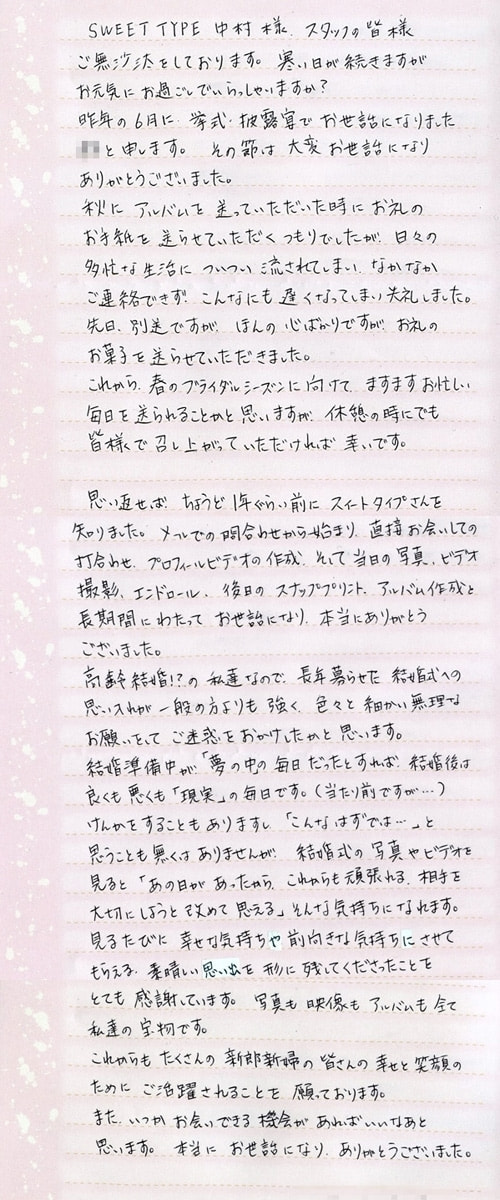 SWEET TYPE 中村様、スタッフの皆様
ご無沙汰をしております。寒い日が続きますが
お元気にお過ごしでいらっしゃいますか？
昨年の6月に、挙式・披露宴でお世話になりました
と申します。その節は大変お世話になり
ありがとうございました。
秋にアルバムを送っていただいた時にお礼の
お手紙を送らせていただくつもりでしたが、日々の
多忙な生活についつい流されてしまい、なかなか
ご連絡できず、こんなにも遅くなってしまい失礼しました。
先日、別送ですが、ほんの心ばかりですが、お礼の
お菓子を送らせていただきました。
これから、春のブライダルシーズンに向けて、ますますお忙しい
毎日を送られることかと思いますが、休憩の時にでも
皆様で召し上がっていただければ幸いです。
思い返せば、ちょうど1年ぐらい前にスイートタイプさんを
知りました。メールでの問合わせから始まり、直接お会いしての
打合わせ、プロフィールビデオの作成、そして当日の写真、ビデオ
撮影、エンドロール、後日のスナッププリント、アルバム作成と
長期間にわたってお世話になり、本当にありがとう
ございました。
高齢結婚!?の私達なので、長年募らせた結婚式への
思い入れが一般の方よりも強く、色々と細かい無理な
お願いをしてご迷惑をおかけしたかと思います。
結婚準備中が「夢の中の毎日だったとすれば、結婚後は
良くも悪くも「現実」の毎日です。（当たり前ですが…）
けんかをすることもありますし、「こんなはずでは…」と
思うことも無くはありませんが、結婚式の写真やビデオを
見ると「あの日があったから、これからも頑張れる、相手を
大切にしようと改めて思える」そんな気持ちになれます。
見るたびに幸せな気持ちや前向きな気持ちにさせて
もらえる、素晴しい思い出を形に残してくださったことを
とても感謝しています。写真も映像もアルバムも全て
私達の宝物です。
これからもたくさんの新郎新婦の皆さんの幸せと笑顔の
ためにご活躍されることを願っております。
また、いつかお会いできる機会があればいいなあと
思います。本当にお世話になり、ありがとうございました。